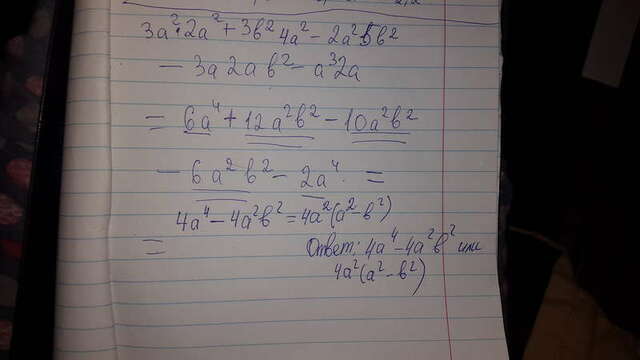 3a²·2a² + 3b²4a² - 2a²5b²
- 3a2ab² - a³2a
= 6a⁴ + 12a²b² - 10a²b²
- 6a²b² - 2a⁴ =
= 4a⁴ - 4a²b² = 4a²(a²-b²)
Ответ: 4a⁴ - 4a²b² или
4a²(a²-b²)